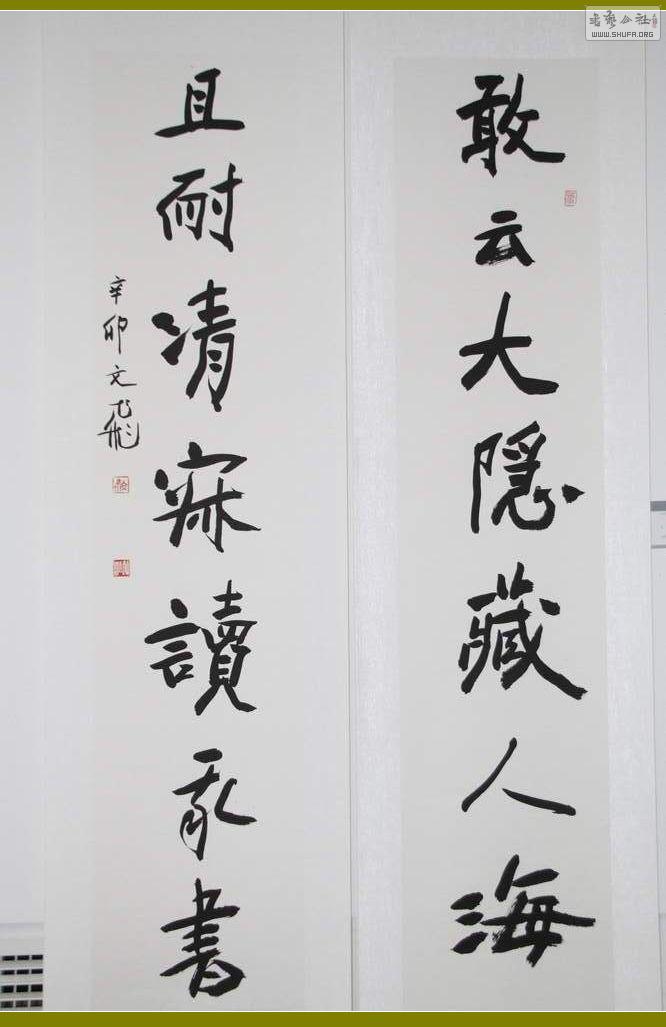 敢云大隐藏人海
且耐清寂讀我書
辛卯文飛
書藝公社
WWW.SHUFA.ORG